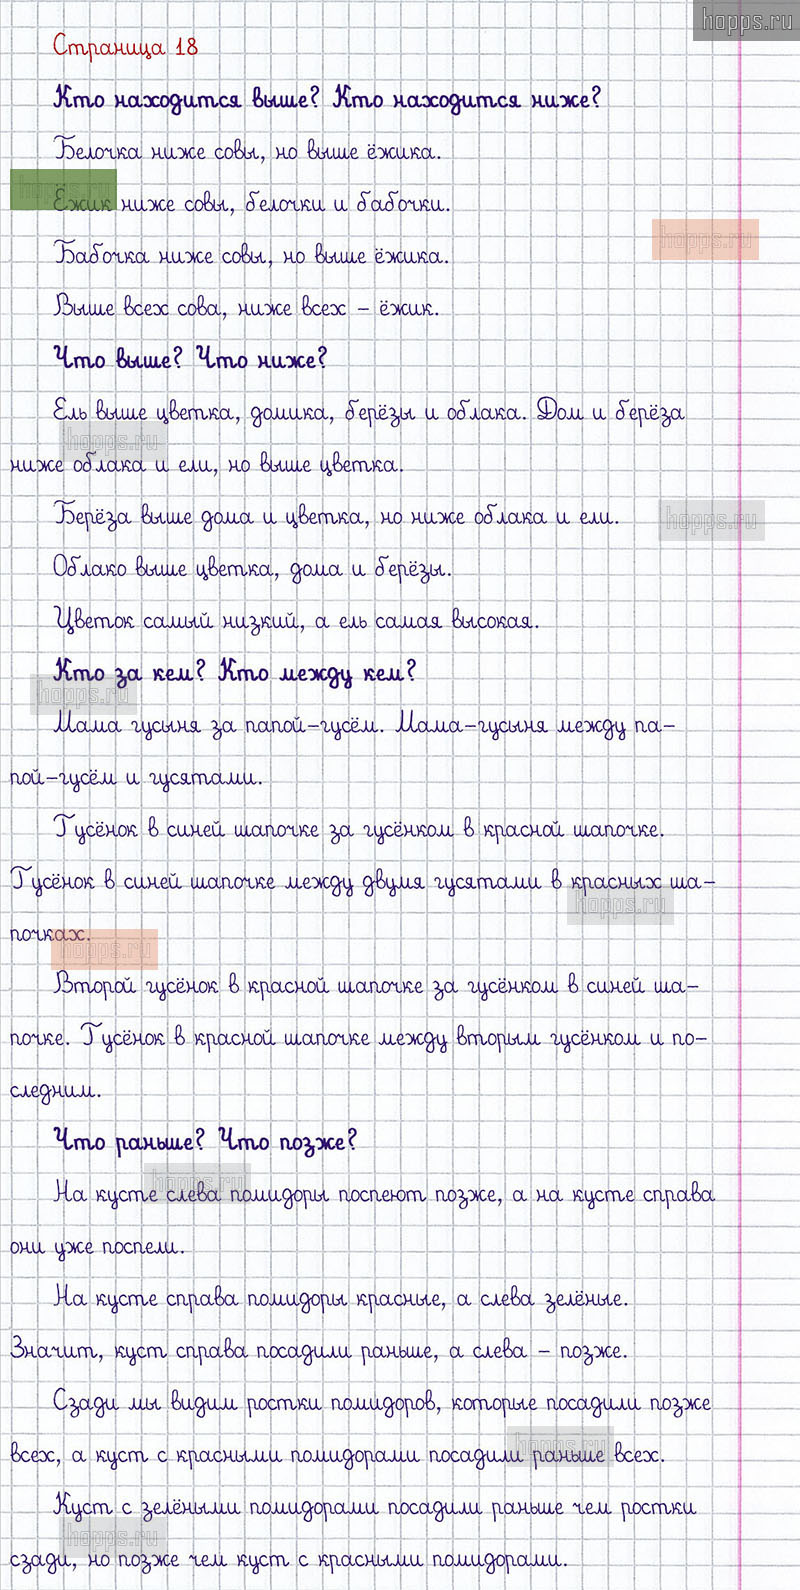 hopps.ru
Страница 18
Кто находится выше? Кто находится ниже?
Белочка ниже совы, но выше ёжика.
hopps.ru
Ёжик ниже совы, белочки и бабочки.
hopps.ru
Бабочка ниже совы, но выше ёжика.
Выше всех сова, ниже всех – ёжик.
Что выше? Что ниже?
Ель выше цветка, домика, берёзы и облака. Дом и берёза
hopps.ru
ниже облака и ели, но выше цветка.
Берёза выше дома и цветка, но ниже облака и ели.
hopps.ru
Облако выше цветка, дома и берёзы.
Цветок самый низкий, а ель самая высокая.
Кто за кем? Кто между кем?
hopps.ru
Мама гусыня за папой-гусём. Мама-гусыня между па-
пой-гусём и гусятами.
Гусёнок в синей шапочке за гусёнком в красной шапочке.
Гусёнок в синей шапочке между двумя гусятами в красных ша-
hopps.ru
почках.
hopps.ru
Второй гусёнок в красной шапочке за гусёнком в синей ша-
почке. Гусёнок в красной шапочке между вторым гусёнком и по-
следним.
Что раньше? Что позже?
hopps.ru
На кусте слева помидоры поспеют позже, а на кусте справа
они уже поспели.
На кусте справа помидоры красные, а слева зелёные.
Значит, куст справа посадили раньше, а слева – позже.
Сзади мы видим ростки помидоров, которые посадили позже
hopps.ru
всех, а куст с красными помидорами посадили раньше всех.
Куст с зелёными помидорами посадили раньше чем ростки
hopps.ru
сзади, но позже чем куст с красными помидорами.